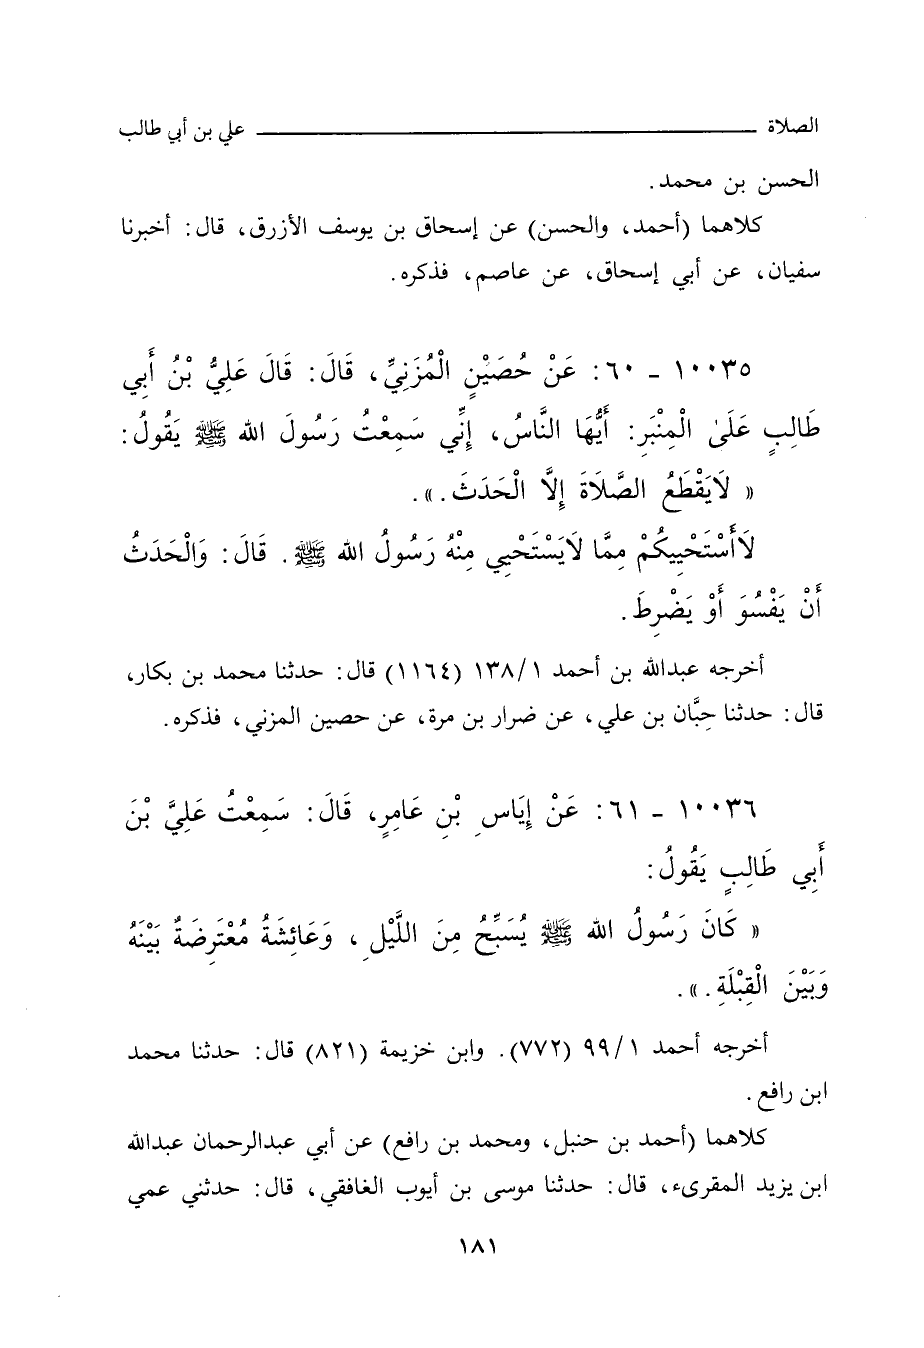 الصلاة ـــــــــــــــــــــــــــــ علي بن أبي طالب
الحسن بن محمد.
كلاهما (أحمد، والحسن) عن إسحاق بن يوسف الأزرق، قال: أخبرنا
سفيان، عن أبي إسحاق، عن عاصم، فذكره.
١٠٠٣٥ - ٦٠: عَنْ حُصَيْنٍ الْمُزَنِيِّ، قَالَ: قَالَ عَلِيُّ بْنُ أَبِي
طَالِبٍ عَلَىٰ الْمِنْبَرِ: أَيُّهَا النَّاسُ، إِنِّي سَمِعْتُ رَسُولَ الله ﷺ يَقُولُ:
« لَايَقْطَعُ الصَّلَاةَ إِلَّا الْحَدَثَ.».
لَاأَسْتَحْيِيكُمْ مِمَّا لَايَسْتَحْيِي مِنْهُ رَسُولُ الله ﷺ. قَالَ: وَالْحَدَثُ
أَنْ يَفْسُوَ أَوْ يَضْرِطَ.
أخرجه عبدالله بن أحمد ١٣٨/١ (١١٦٤) قال: حدثنا محمد بن بكار،
قال: حدثنا حِبَّان بن علي، عن ضرار بن مرة، عن حصين المزني، فذكره.
١٠٠٣٦ - ٦١: عَنْ إِيَاسِ بْنِ عَامِرٍ، قَالَ: سَمِعْتُ عَلِيَّ بْنَ
أَبِي طَالِبٍ يَقُولُ:
« كَانَ رَسُولُ الله ﷺ يُسَبِّحُ مِنَ اللَّيْلِ، وَعَائِشَةُ مُعْتَرِضَةٌ بَيْنَهُ
وَبَيْنَ الْقِبْلَةِ.».
أخرجه أحمد ٩٩/١ (٧٧٢). وابن خزيمة (٨٢١) قال: حدثنا محمد
ابن رافع.
كلاهما (أحمد بن حنبل، ومحمد بن رافع) عن أبي عبدالرحمان عبدالله
ابن يزيد المقرىء، قال: حدثنا موسى بن أيوب الغافقي، قال: حدثني عمي
١٨١